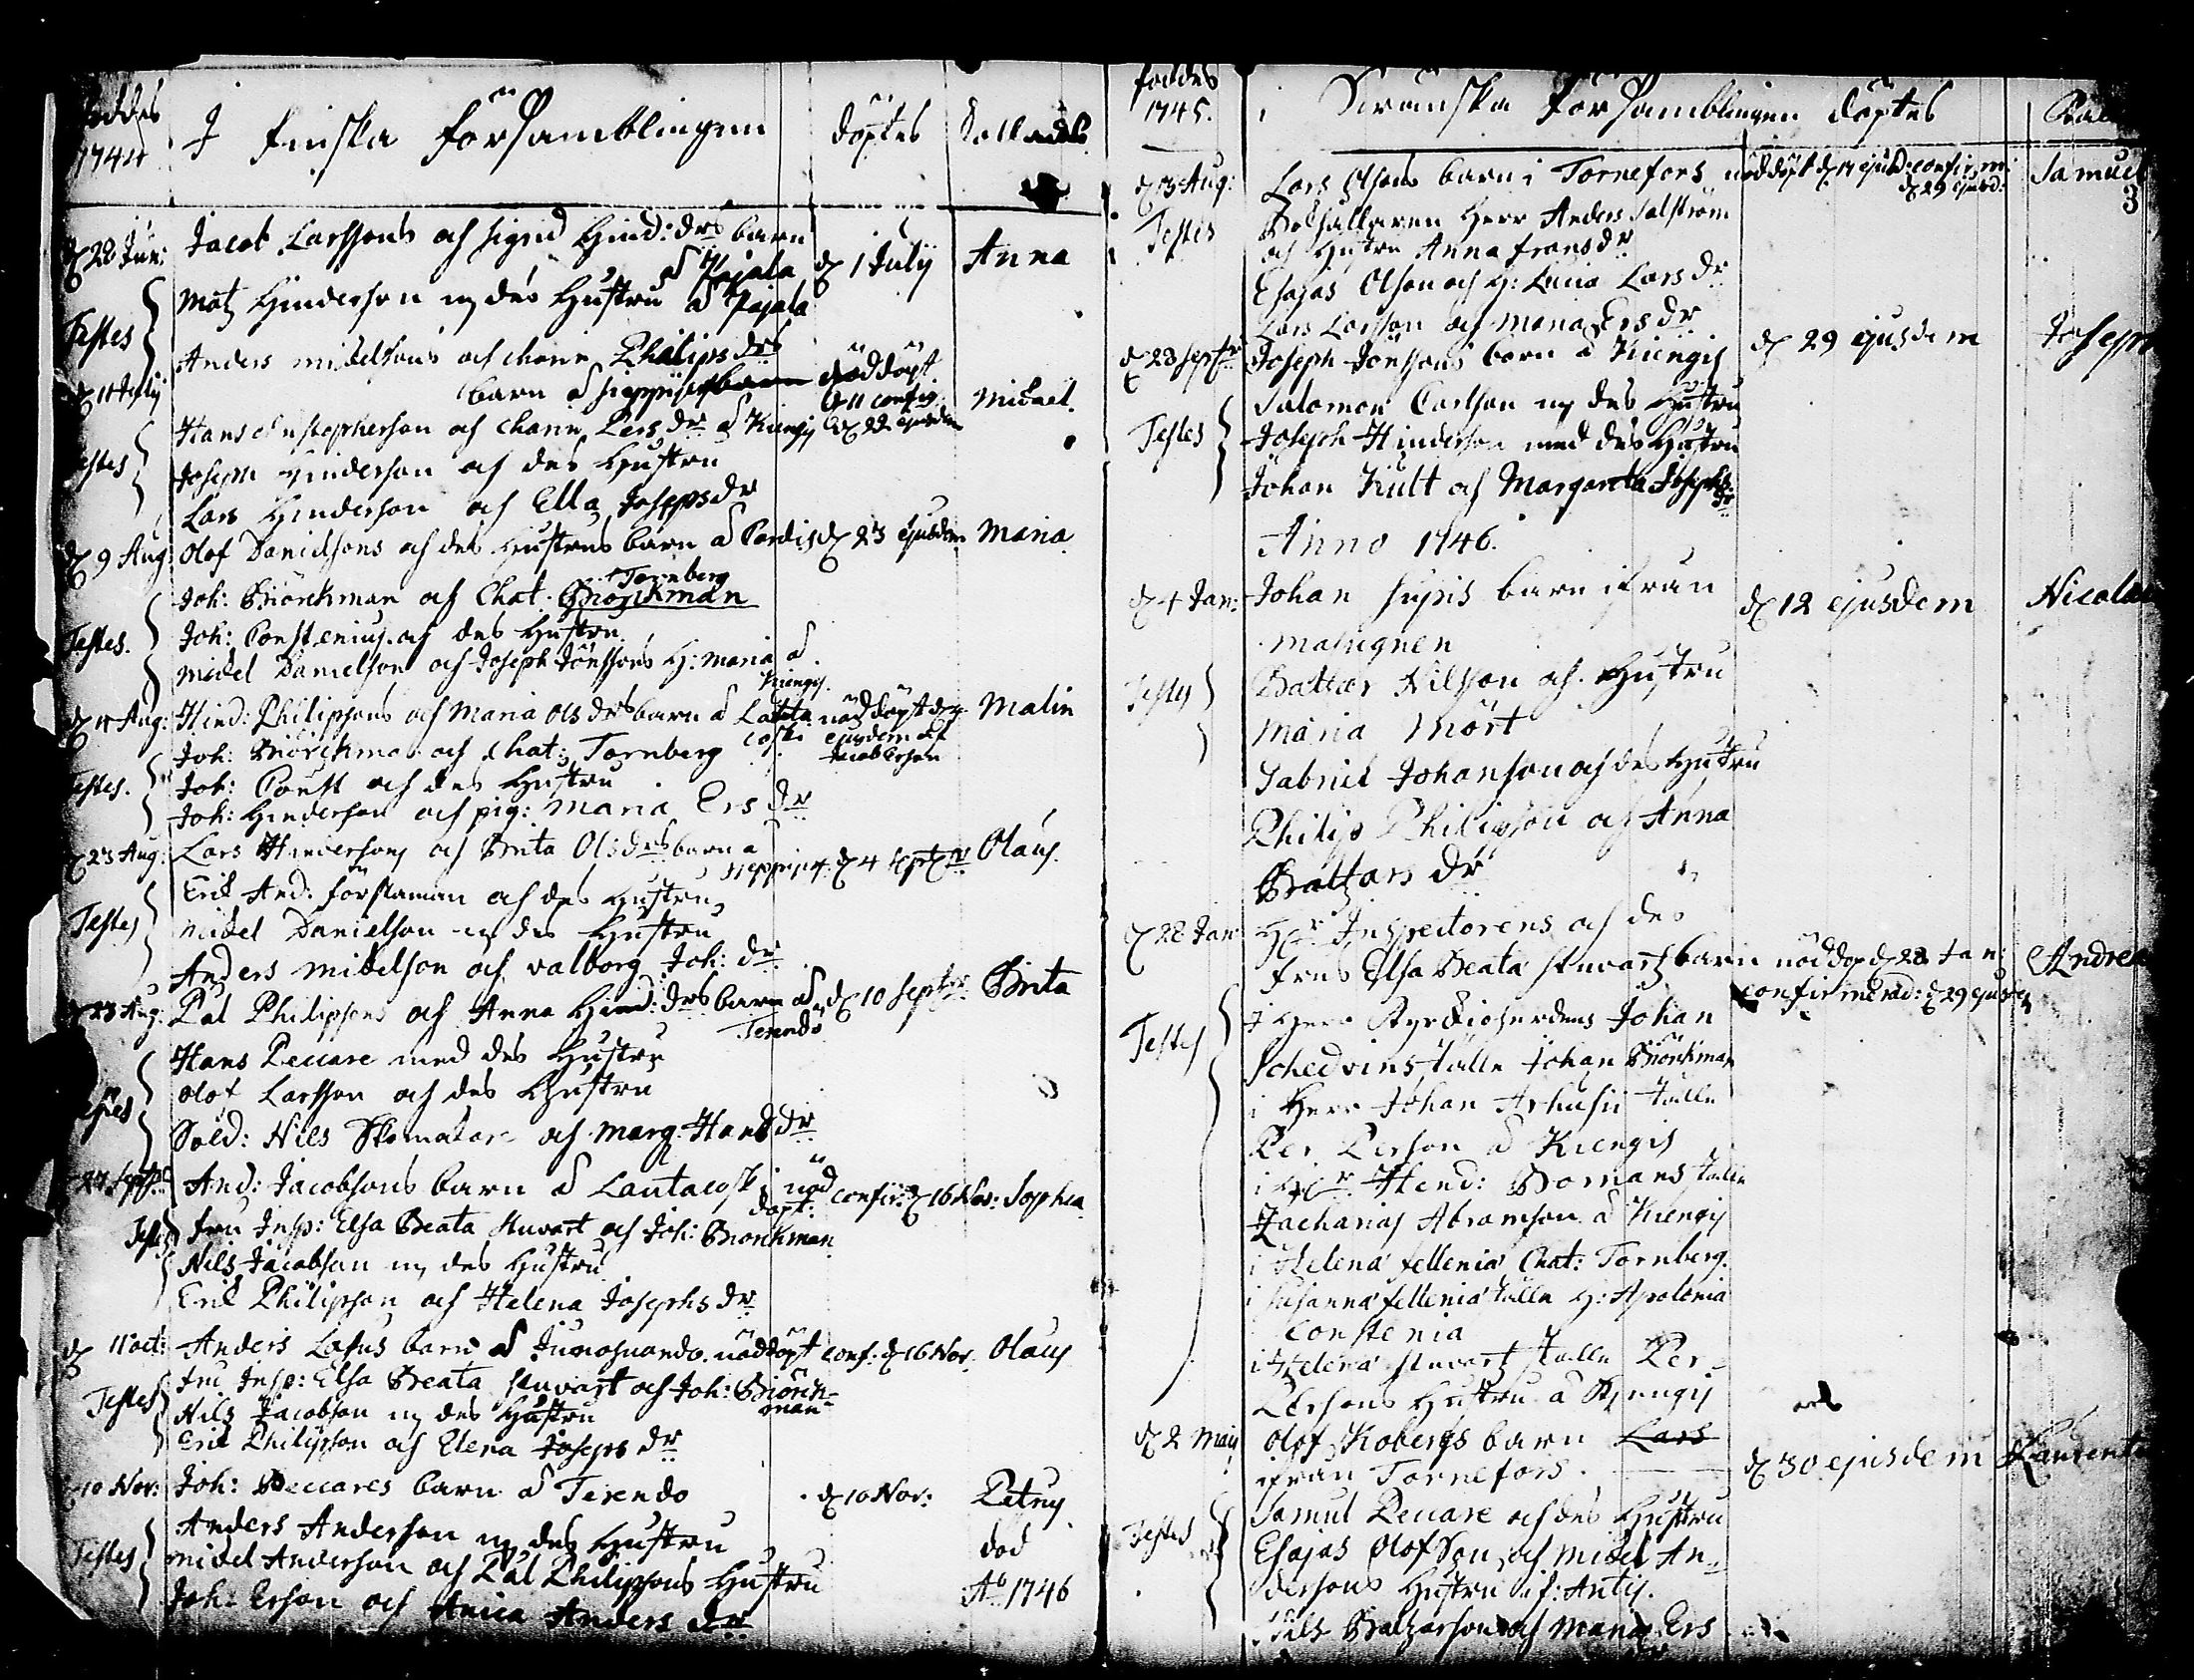 föddes
1744
J finska församblingen
döptes
kallades
d 28 Jun: Jacob Larssons och Sigrid Hind: drs barn
å Pajala d 1 Julij Anna
Testes
Matz Hinderson m des Hustru å Pajala
Anders Michelsons och Charin Philipsdrs
d 11 Julij barn å Sieppijerf nöddöpt Michael
d 11 confir:
d 22 ejusdem
Testes
Hans Christopherson och Charin Persdr å Kiengis
Joseph Hinderson och des Hustru
Lars Hinderson och Ella Josepsdr
d 9 Aug: Olof Danielsons och des Hustrus barn å Pardis d 23 ejusdem Maria
Testes.
Tornberg
Joh: Biörckman och Chat: Biörckman
Joh: Constenius och des Hustru
Michel Danielson och Joseph Jönssons H: Maria å
Kiengis.
d 4 Aug: Hind: Philipsons och Maria Olsdrs barn å Lauta nöddöpt d Malin
coski ejusdem af
Jacob Erson
Testes.
Joh: Biörckman och Chat: Tornberg
Joh: Const och des Hustru
Joh: Hinderson och pig: Maria Ersdr
d 23 Aug: Lars Hindersons och Brita Olsdrs barn å
Sieppijerf d 4 Septbr Olaus
Testes
Erik And: Förstaman och des Hustru
Michel Danielson m des Hustru
Anders Michelson och Valborg Joh: dr
d 23 Aug: Pål Philipsons och Anna Hind: drs barn å d 10 Septbr Brita
Terendö
Testes
Hans Peccare med des Hustru
Olof Larsson och des Hustru
Sold: Nils Skomakare och Marg: Hansdr
27 Septbr And: Jacobsons barn å Lautacoski nöd confir: d 16 Nov: Sophia
döpt:
Testes
Fru Insp: Elsa Beata Stuvart och Joh: Biorckman
Nils Jacobson m des Hustru
Erik Philipson och Helena Josephsdr
d 11 oct: Anders Lasus barn å Junosuando nöddöpt conf: d 16 Nov. Olaus
Testes
Fru Insp: Elsa Beata Stuvart och Joh: Biörck-
man
Nils Jacobson m des Hustru
Erik Philipson och Elena Josepsdr
d 10 Nov: Joh: Peccares barn å Terendo d 10 Nov: Petrus
död
Ao 1746
Testes
Anders Anderson m des Hustru
Michel Anderson och Pål Philipsons Hustru
Joh: Erson och Anica Andersdr
föddes
1745.
i Swenska församblingen döptes
3
d 13 Aug: Lars Olsons barn i Tornefors nöddöpt d 17 ejusd: confirm: Samuel
d 29 ejusd:
Testes
Bokhållaren Herr Anders Salström
och Hustru Anna Fransdr
Esajas Olson och H: Lucia Larsdr
Lars Larsson och Maria Ersdr
d 23 Septbr Joseph Jönssons barn å Kiengis d 29 ejusdem Joseph
Testes
Salomon Carlson m des Hustru
Joseph Hinderson med des Hustru
Johan Kult och Margareta Josephsdr
Anno 1746.
d 4 Jan: Johan Supis barn ifrån d 12 ejusdem Nicolaus
Masugnen
Testes
Baltzar Nilsson och Hustru
Maria Mört
Gabriel Johanson och des Hustru
Philip Philipson och Anna
Baltzars dr
d 28 Jan: Hr Inspectorens och des
frus Elsa Beata Stuvartz barn nöddöp d 28 Jan: Andreas
confirmerad: d 29 ejusd
Testes
i Herr Kyrckioherdens Johan
Schedvins ställe Johan Biörckman
i Herr Johan Arhusii ställe
Per Person å Kiengis
i Hr Hend: Bomans ställe
Zacharias Abramson å Kiengis
i Helena Fellenia Chat: Tornberg.
i Susanna Fellenia ställe H: Apolonia
Constenia
i Helena Stuvartz ställe Per
Persons Hustru å Kiengis
d 2 Maij Olof Kobergs barn Lars
ifrån Tornefors. d 30 ejusdem Laurentius
Testes
Samuel Peccare och des Hustru
Esajas Olofson och Michel An-
dersons Hustru if: Antis.
Nils Baltzarson och Maria Ers